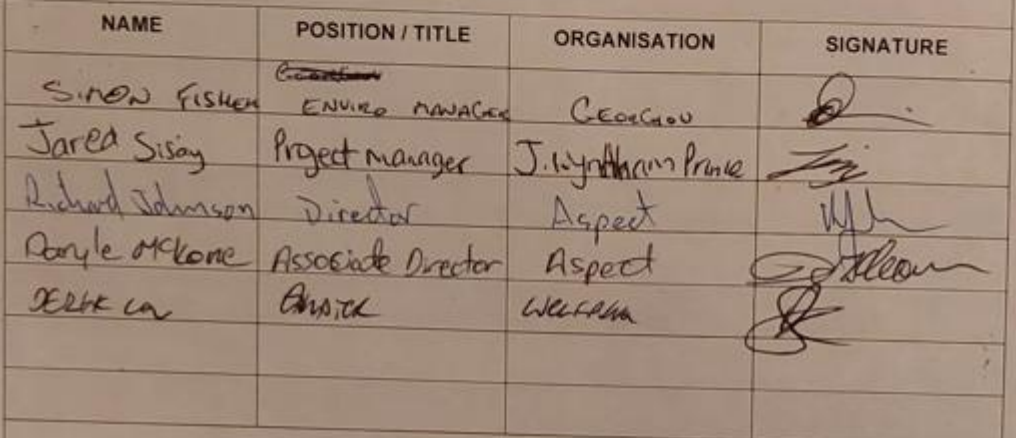 NAME POSITION / TITLE ORGANISATION SIGNATURE
SIMON FISHER ENVIRO MANAGER
Jared Sisay Project manager J. Wyndham Prince
Richard Johnson Director Aspect
Daryle McKone Associate Director Aspect
DEREK